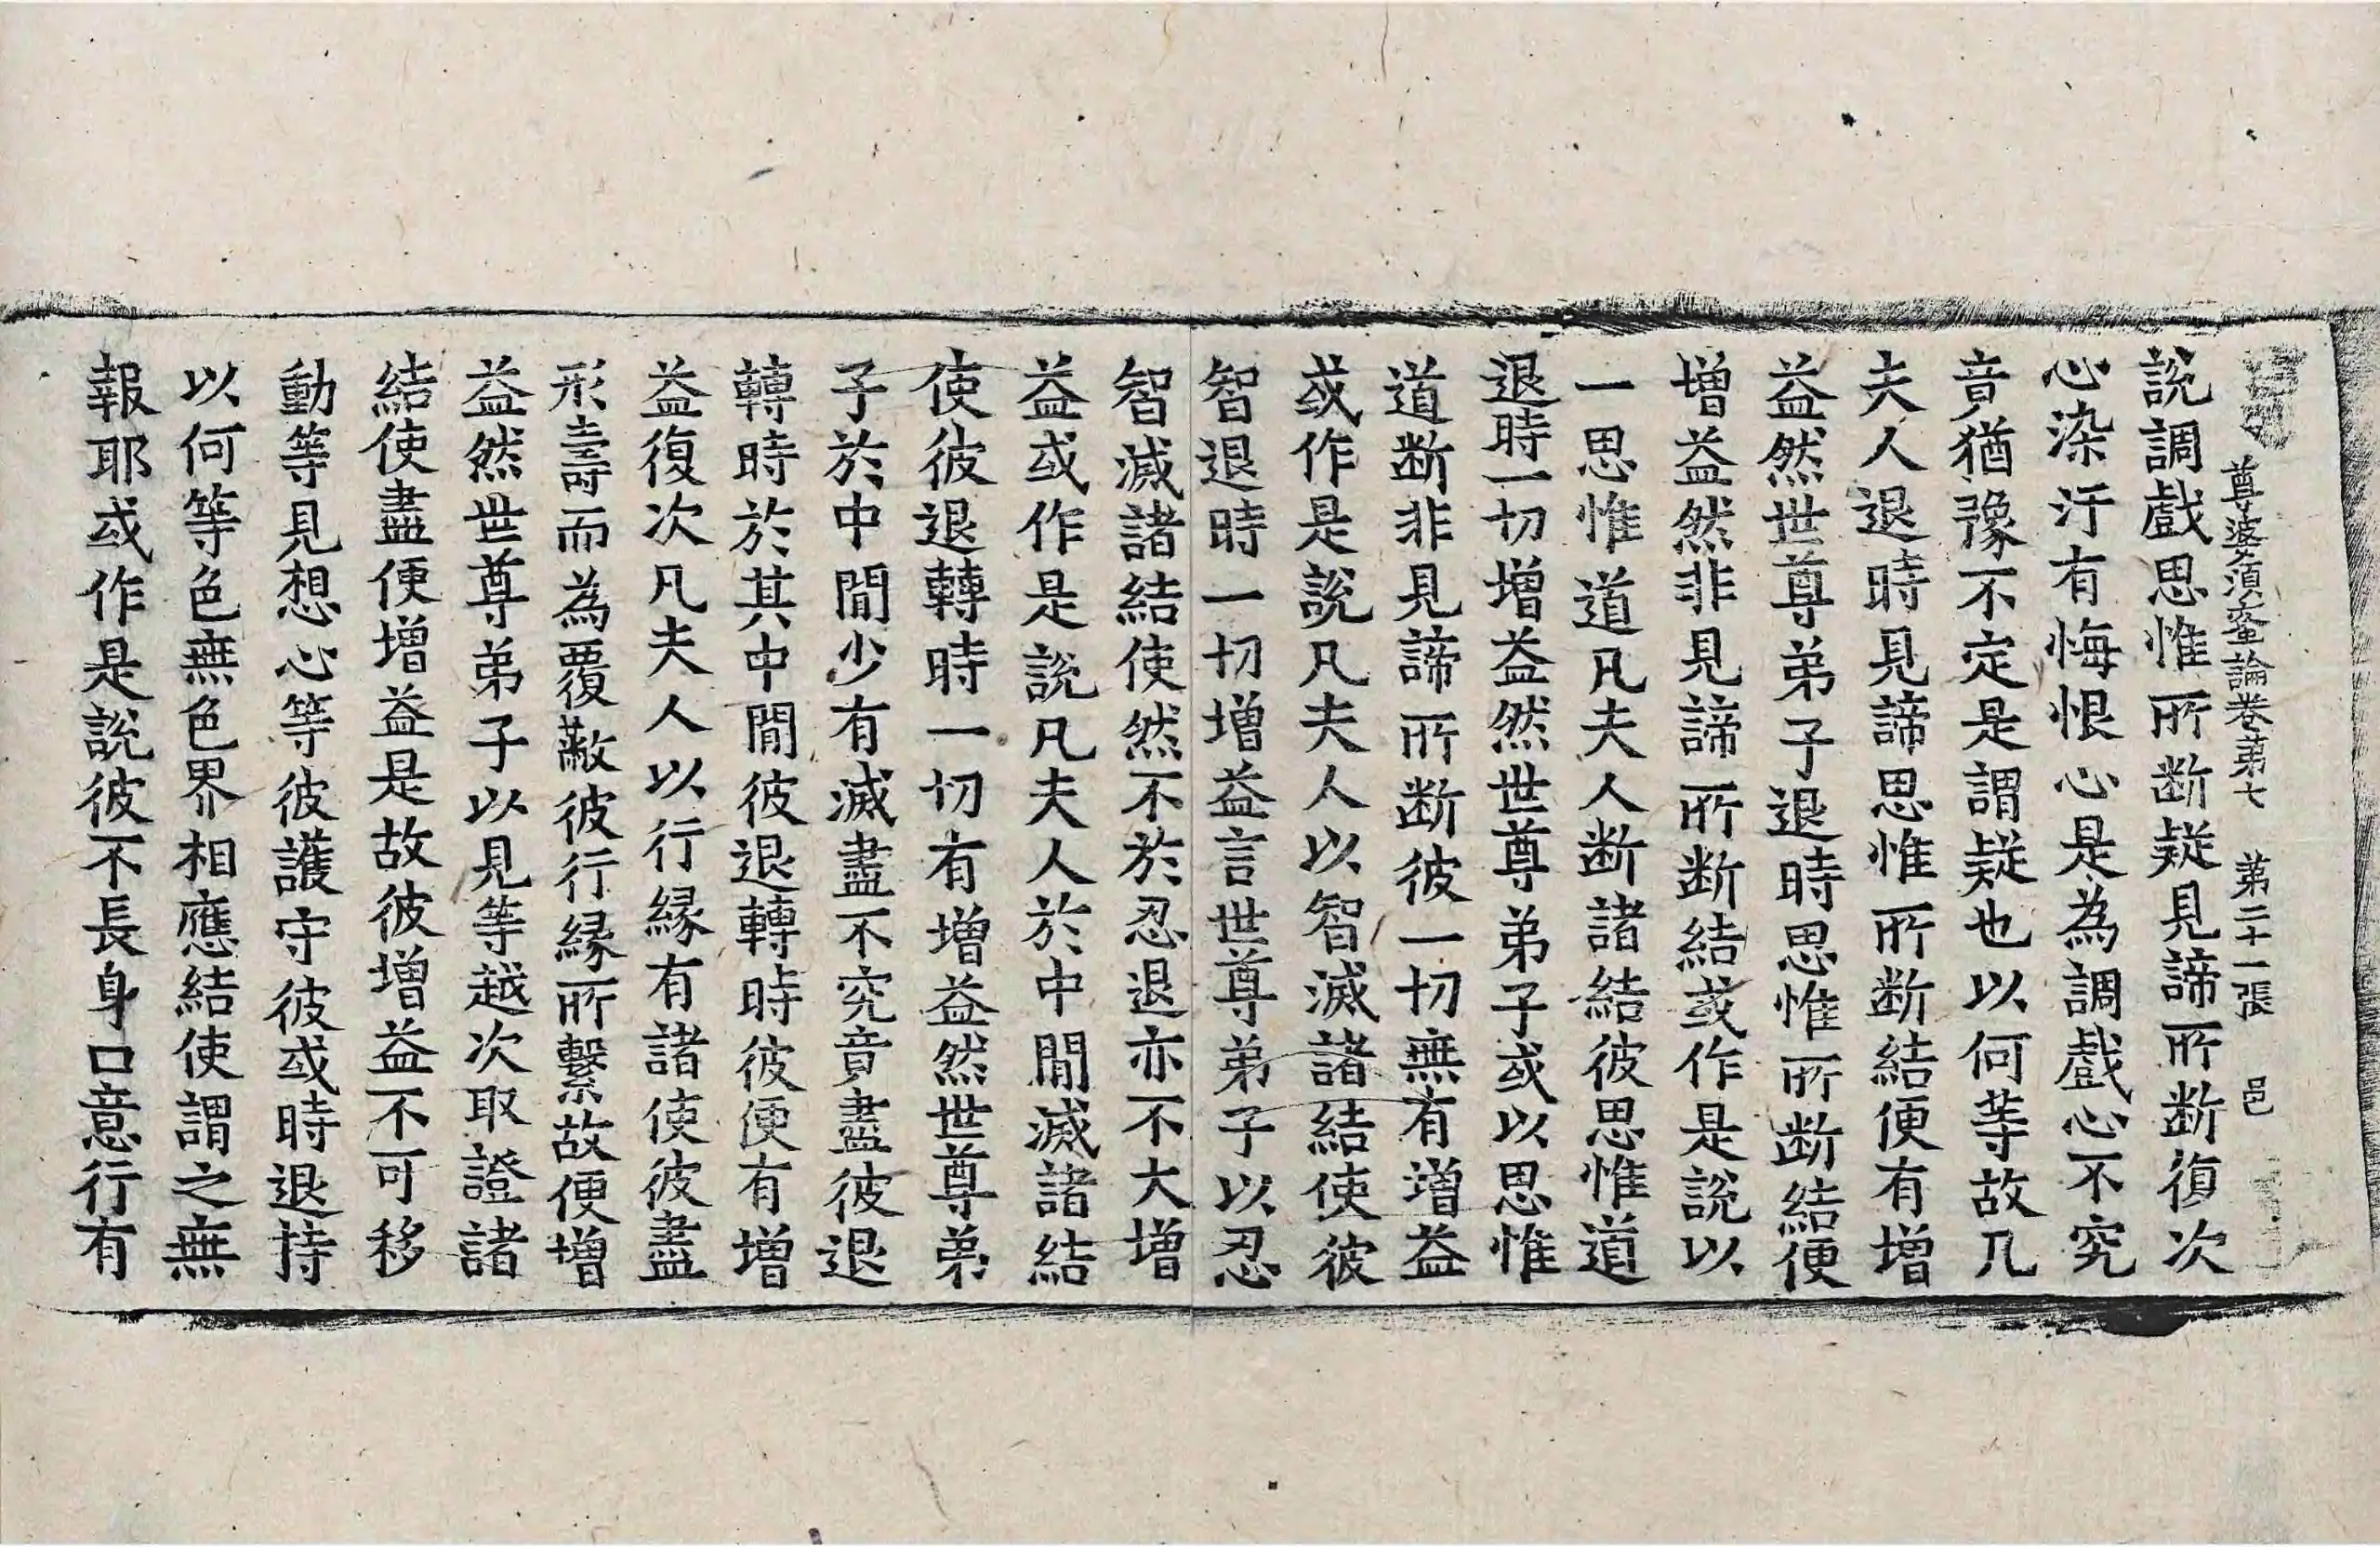 尊婆須蜜論卷第七 第二十一張 邑
說調戲思惟所断疑見諦所断復次
心染汙有悔恨心是為調戲心不究
竟猶豫不定是謂疑也以何等故凡
夫人退時見諦思惟所断結便有增
益然世尊弟子退時思惟所断結便
增益然非見諦所断結或作是說以
一思惟道凡夫人断諸結彼思惟道
退時一切增益然世尊弟子或以思惟
道断非見諦所断彼一切無有增益
或作是說凡夫人以智滅諸結使彼
智退時一切增益言世尊弟子以忍
智滅諸結使然不於忍退亦不大增
益或作是說凡夫人於中間滅諸結
使彼退轉時一切有增益然世尊弟
子於中間少有滅盡不究竟盡彼退
轉時於其中間彼退轉時彼便有增
益復次凡夫人以行緣有諸使彼盡
形壽而為覆蔽彼行緣所繫故便增
益然世尊弟子以見等越次取證諸
結使盡便增益是故彼增益不可移
動等見想心等彼護守彼或時退持
以何等色無色界相應結使謂之無
報耶或作是說彼不長身口意行有